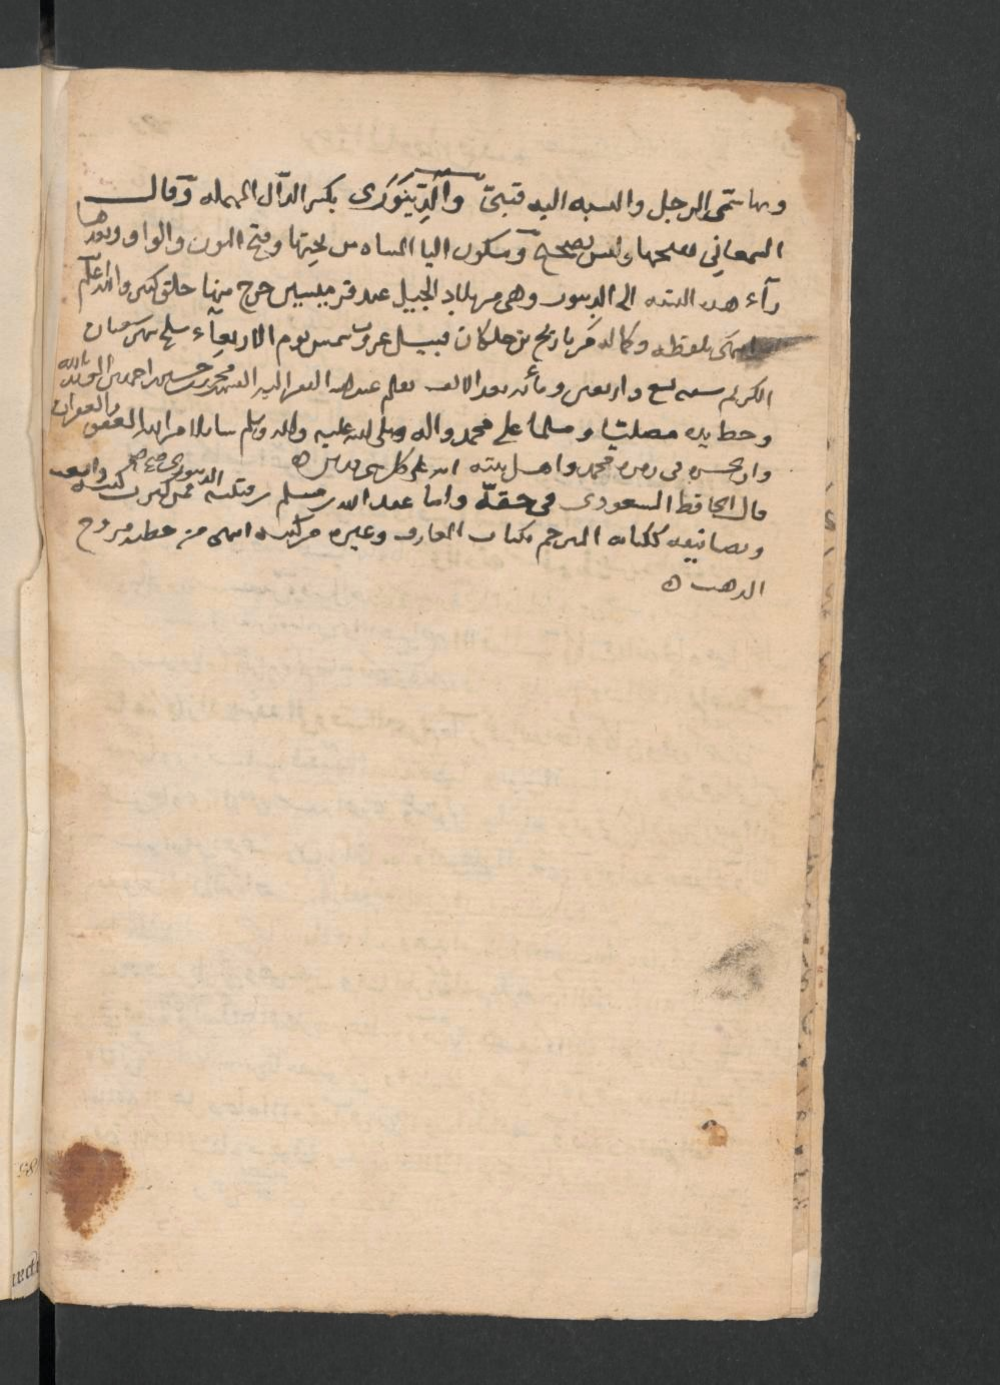 وبها سمّى الرجل والنسبه اليه قتبىّ والدِّينَوَرَى بكسر الدال المهمله وقال
السمعاني بفتحها وليس بصحيح وسكون اليا المثناه من تحتها وفتح النون والواو وبعدها
رآء هذه النسبه الى الدينور وهى من بلاد الجبيل عند قرميسين خرج منها خلق كثير والله اعلم
انتهى بلفظه وكماله من تاريخ بن خلكان قبيل غروب شمس يوم الاربعآء سلخ شهر شعبان
الكريم سنه تسع واربعين ومأته بعد الالف بقلم عبد الله الفقير اليه محمد بن حسين بن احمد
وخط يده مصليًا ومسلما على محمد واله وصلى الله عليه واله وسلم سايلا من الله العفو والغفران
وان يحشره فى زمره محمد واهل بيته انه على كل شى قدير ه
قال الحافظ المسعودى فى حقّه واما عبد الله بن مسلم بن قتيبه الدينورى فممن كثرت كتبه واتسعت
وتصانيفه ككتابه المترجم بكتاب المعارف وغيره من كتبه انتهى من خطه مروج
الذهب ه